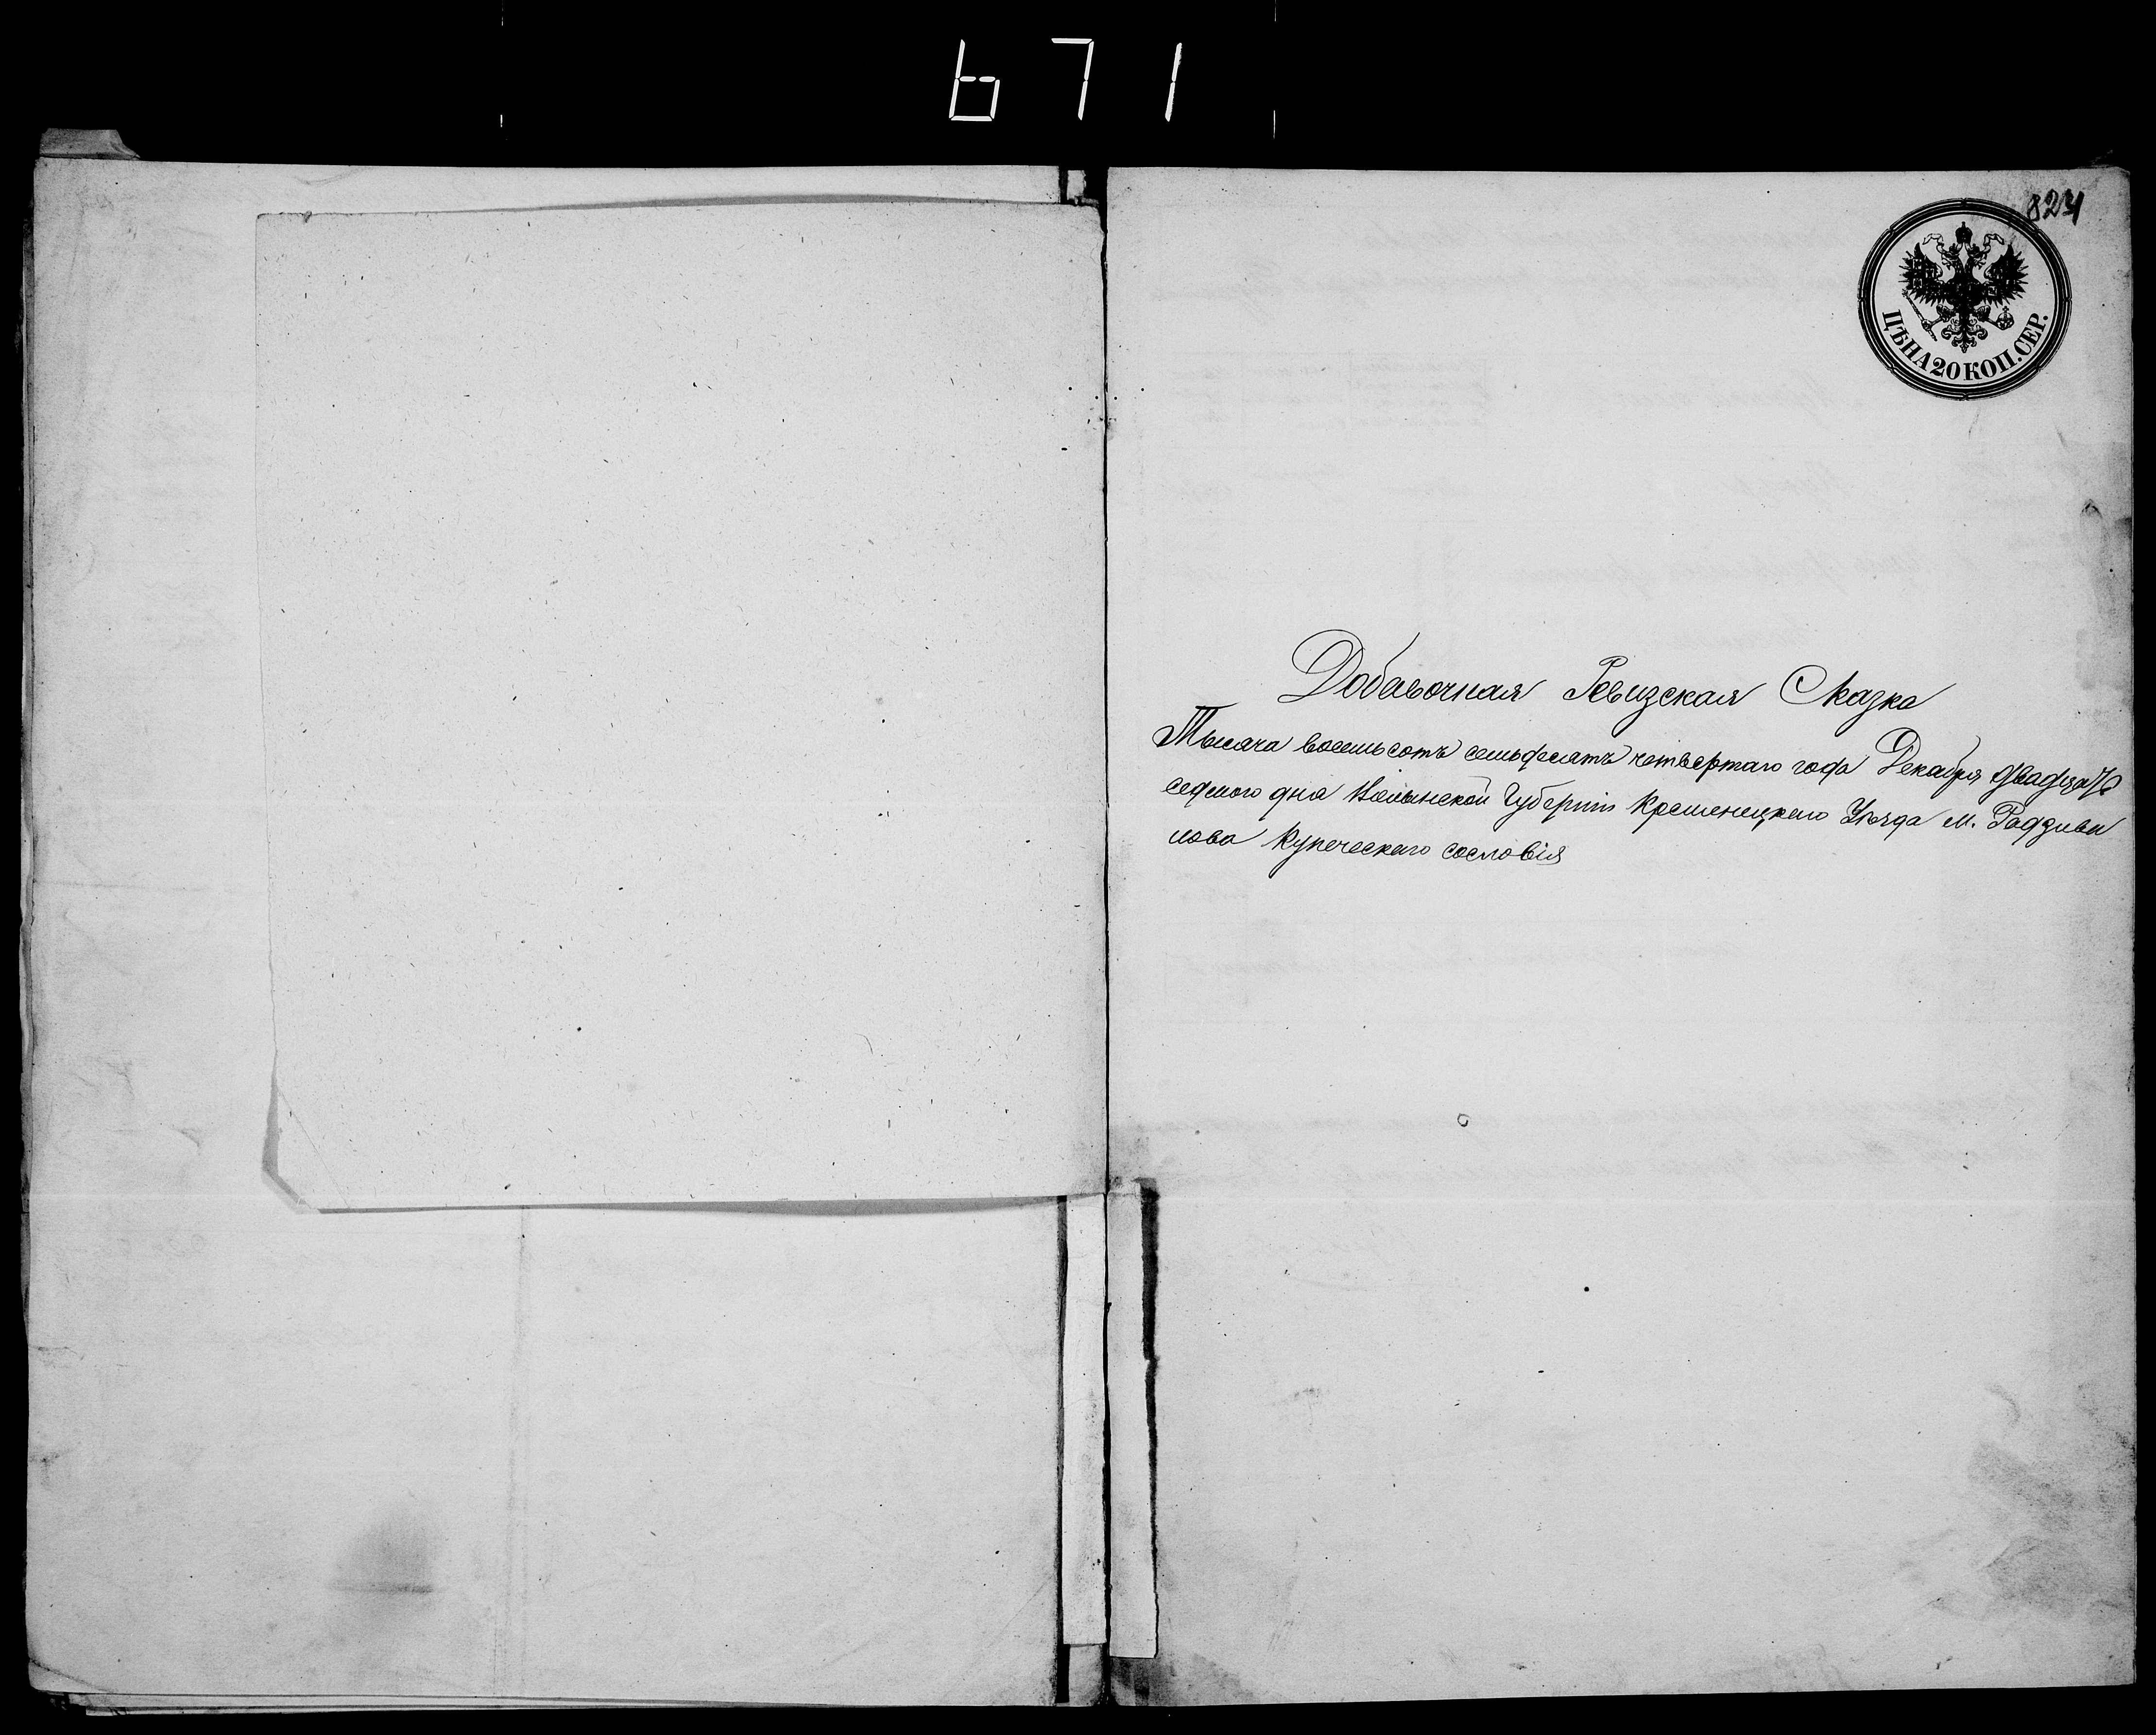 671
824
ЦѢНА 20 КОП. СЕР.
Добавочная Ревизская Сказка
Тысяча восемьсотъ семьдесятъ четвертаго года Декабря двадцать
седмого дна Волынской Губерніи Кременецкаго Уѣзда м. Радзиви
лова Купеческаго сословія